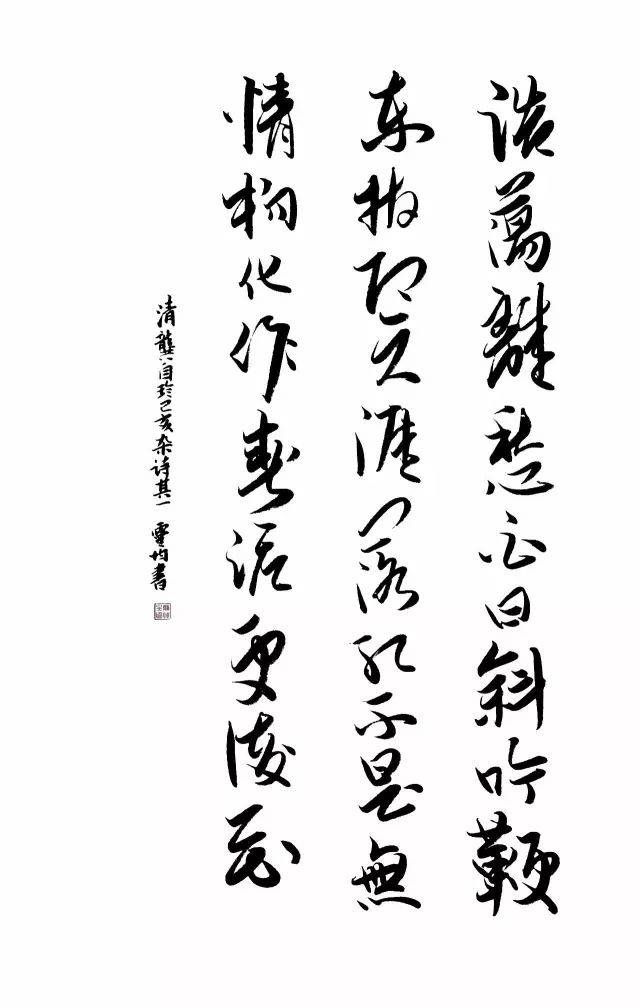 浩蕩離愁白日斜吟鞭
东指即天涯落红不是無
情物化作春泥更護花
清龔自珍己亥杂诗其一 靈均書